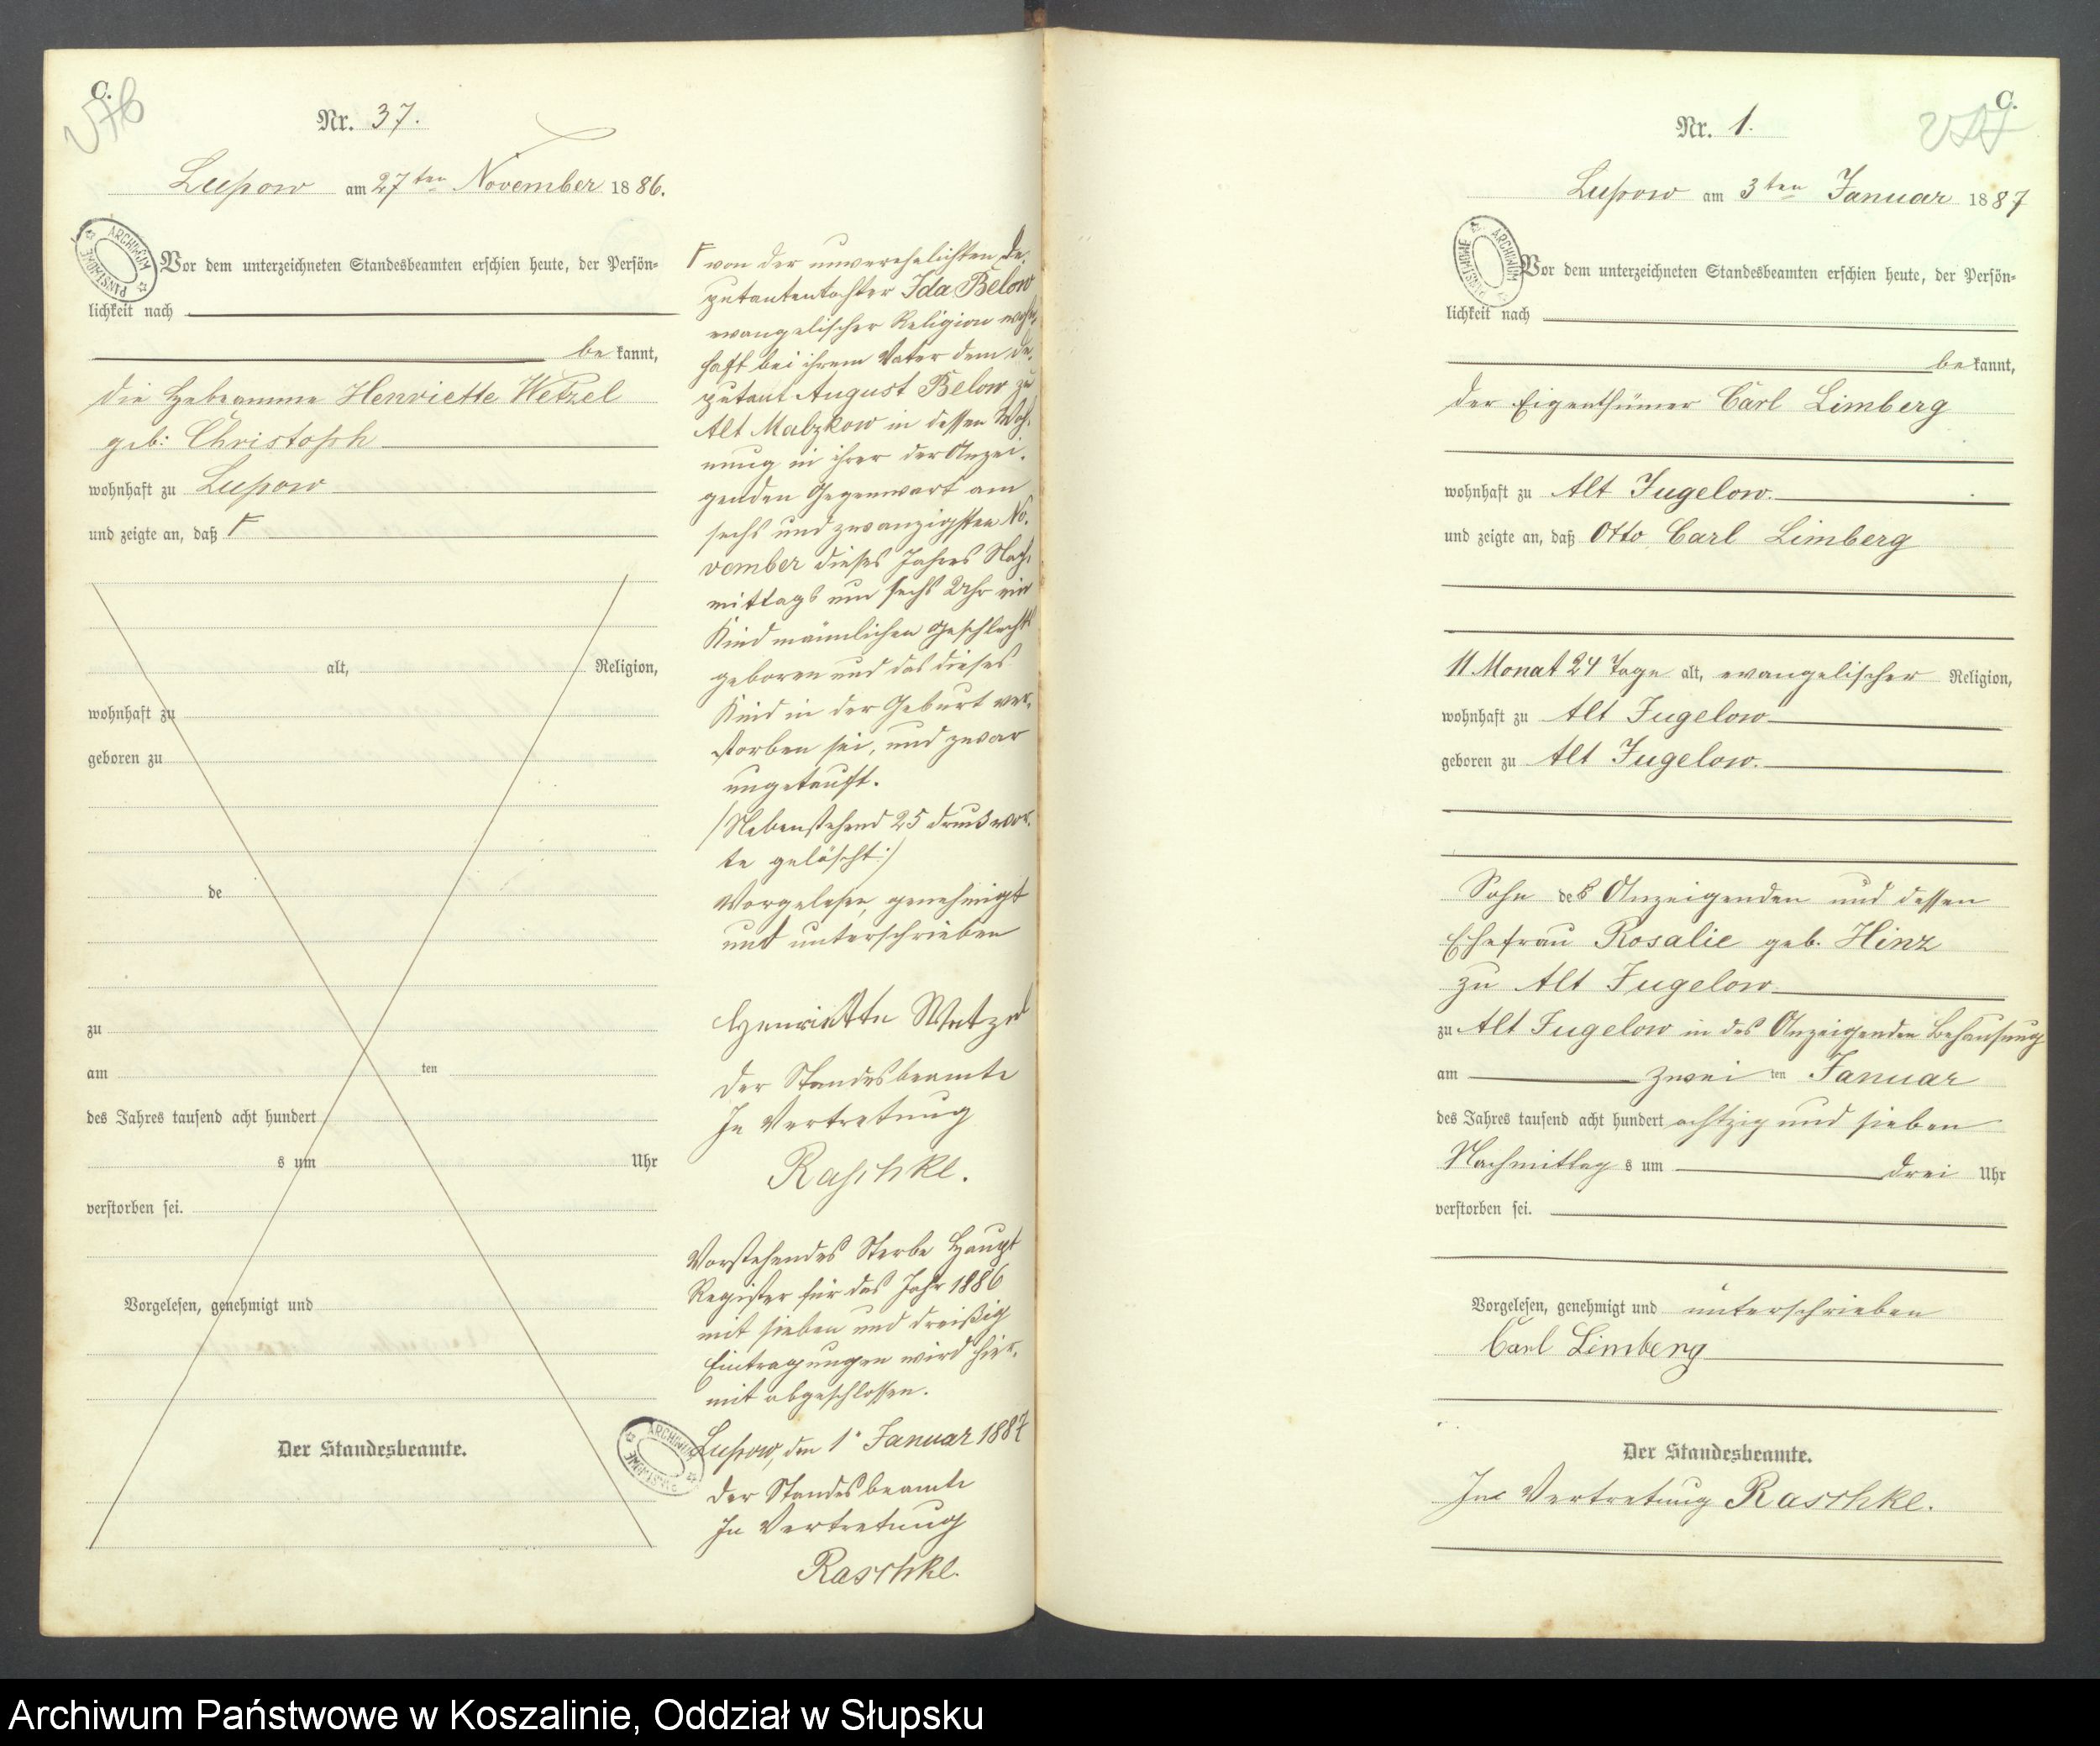 C.
Nr. 37.
Lupow am 27ten November 1886.
Vor dem unterzeichneten Standesbeamten erschien heute, der Persön-
lichkeit nach
be kannt,
die Hebeamme Henriette Wetzel
geb: Christoph
wohnhaft zu Lupow
und zeigte an, daß
alt, Religion,
wohnhaft zu
geboren zu
de
zu
am ten
des Jahres tausend acht hundert
s um Uhr
verstorben sei.
Vorgelesen, genehmigt und
Der Standesbeamte.
von der unverehelichten De-
putantentochter Ida Below
evangelischer Religion wohn-
haft bei ihrem Vater dem De-
putant August Below zu
Alt Malzkow in dessen Woh-
nung in ihrer der Anzei-
genden Gegenwart am
sechs und zwanzigsten No-
vember dieses Jahres Nach-
mittags um sechs Uhr ein
Kind männlichen Geschlechts
geboren und das dieses
Kind in der Geburt ver-
storben sei, und zwar
ungetauft.
/Nebenstehend 25 Druckwor-
te gelöscht:/
Vorgelesen, genehmigt
und unterschrieben
Henriette Wetzel
Der Standesbeamte
In Vertretung
Raschke.
Vorstehendes Sterbe Haupt
Register für das Jahr 1886
mit sieben und dreißig
Eintragungen wird hier-
mit abgeschlossen.
Lupow, den 1. Januar 1887
Der Standesbeamte
In Vertretung
Raschke.
ARCHIWUM PAŃSTWOWE
C.
Nr. 1.
Lupow am 3ten Januar 1887
Vor dem unterzeichneten Standesbeamten erschien heute, der Persön-
lichkeit nach
be kannt,
der Eigenthümer Carl Limberg
wohnhaft zu Alt Jugelow.
und zeigte an, daß Otto Carl Limberg
11 Monat 24 Tage alt, evangelischer Religion,
wohnhaft zu Alt Jugelow
geboren zu Alt Jugelow.
Sohn des Anzeigenden und dessen
Ehefrau Rosalie geb. Hinz
zu Alt Jugelow
zu Alt Jugelow in des Anzeigenden Behausung
am zwei ten Januar
des Jahres tausend acht hundert achtzig und sieben
Nachmittag s um drei Uhr
verstorben sei.
Vorgelesen, genehmigt und unterschrieben
Carl Limberg
Der Standesbeamte.
In Vertretung Raschke.
Archiwum Państwowe w Koszalinie, Oddział w Słupsku